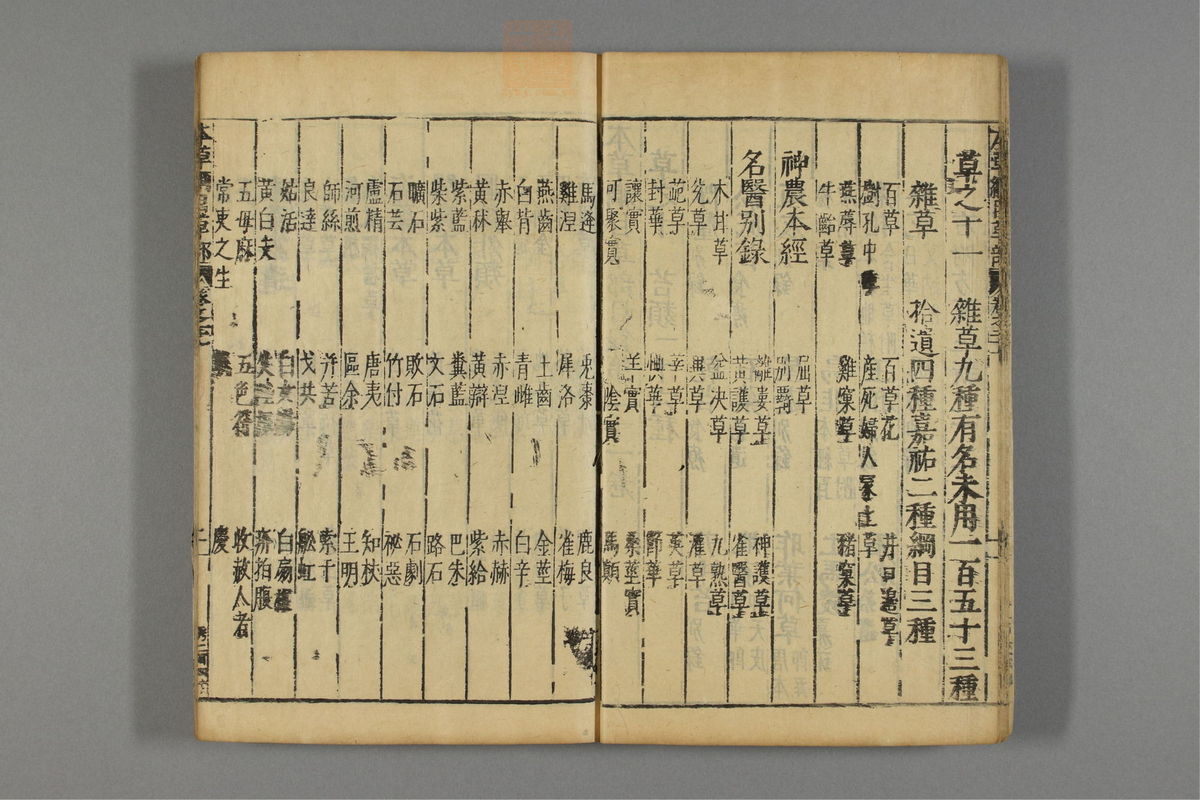 草之十一　雜草九種有名未用一百五十三種
雜草　拾遺四種嘉祐二種綱目三種
百草　百草花　井口邊草
樹孔中草　產死婦人冢上草
燕蓐草　雞窠草　豬窠草
牛齝草
神農本經
屈草　別羇
名醫別錄
離婁草　神護草
黃護草　雀醫草
木甘草　益決草　九熟草
兌草　異草　灌草
草　莘草　英草
封華　䐜華　節華
讓實　羊實　桑莖實
可聚實　陰實　馬顛
馬逢　兔棗　鹿良
雞涅　犀洛　雀梅
燕齒　土齒　金莖
白背　青雌　白辛
赤舉　赤涅　赤赫
黃秫　黃辯　紫給
紫藍　糞藍　巴朱
柴紫　文石　路石
曠石　敗石　石劇
石芸　竹付　祕惡
盧精　唐夷　知杖
河煎　區余　王明
師系　并苦　索干
良達　弋共　船虹
姑活　白女腸　白扇根
黃白支　父陛根　疥拍腹
五母麻　五色符　救赦人者
常吏之生　載　慶